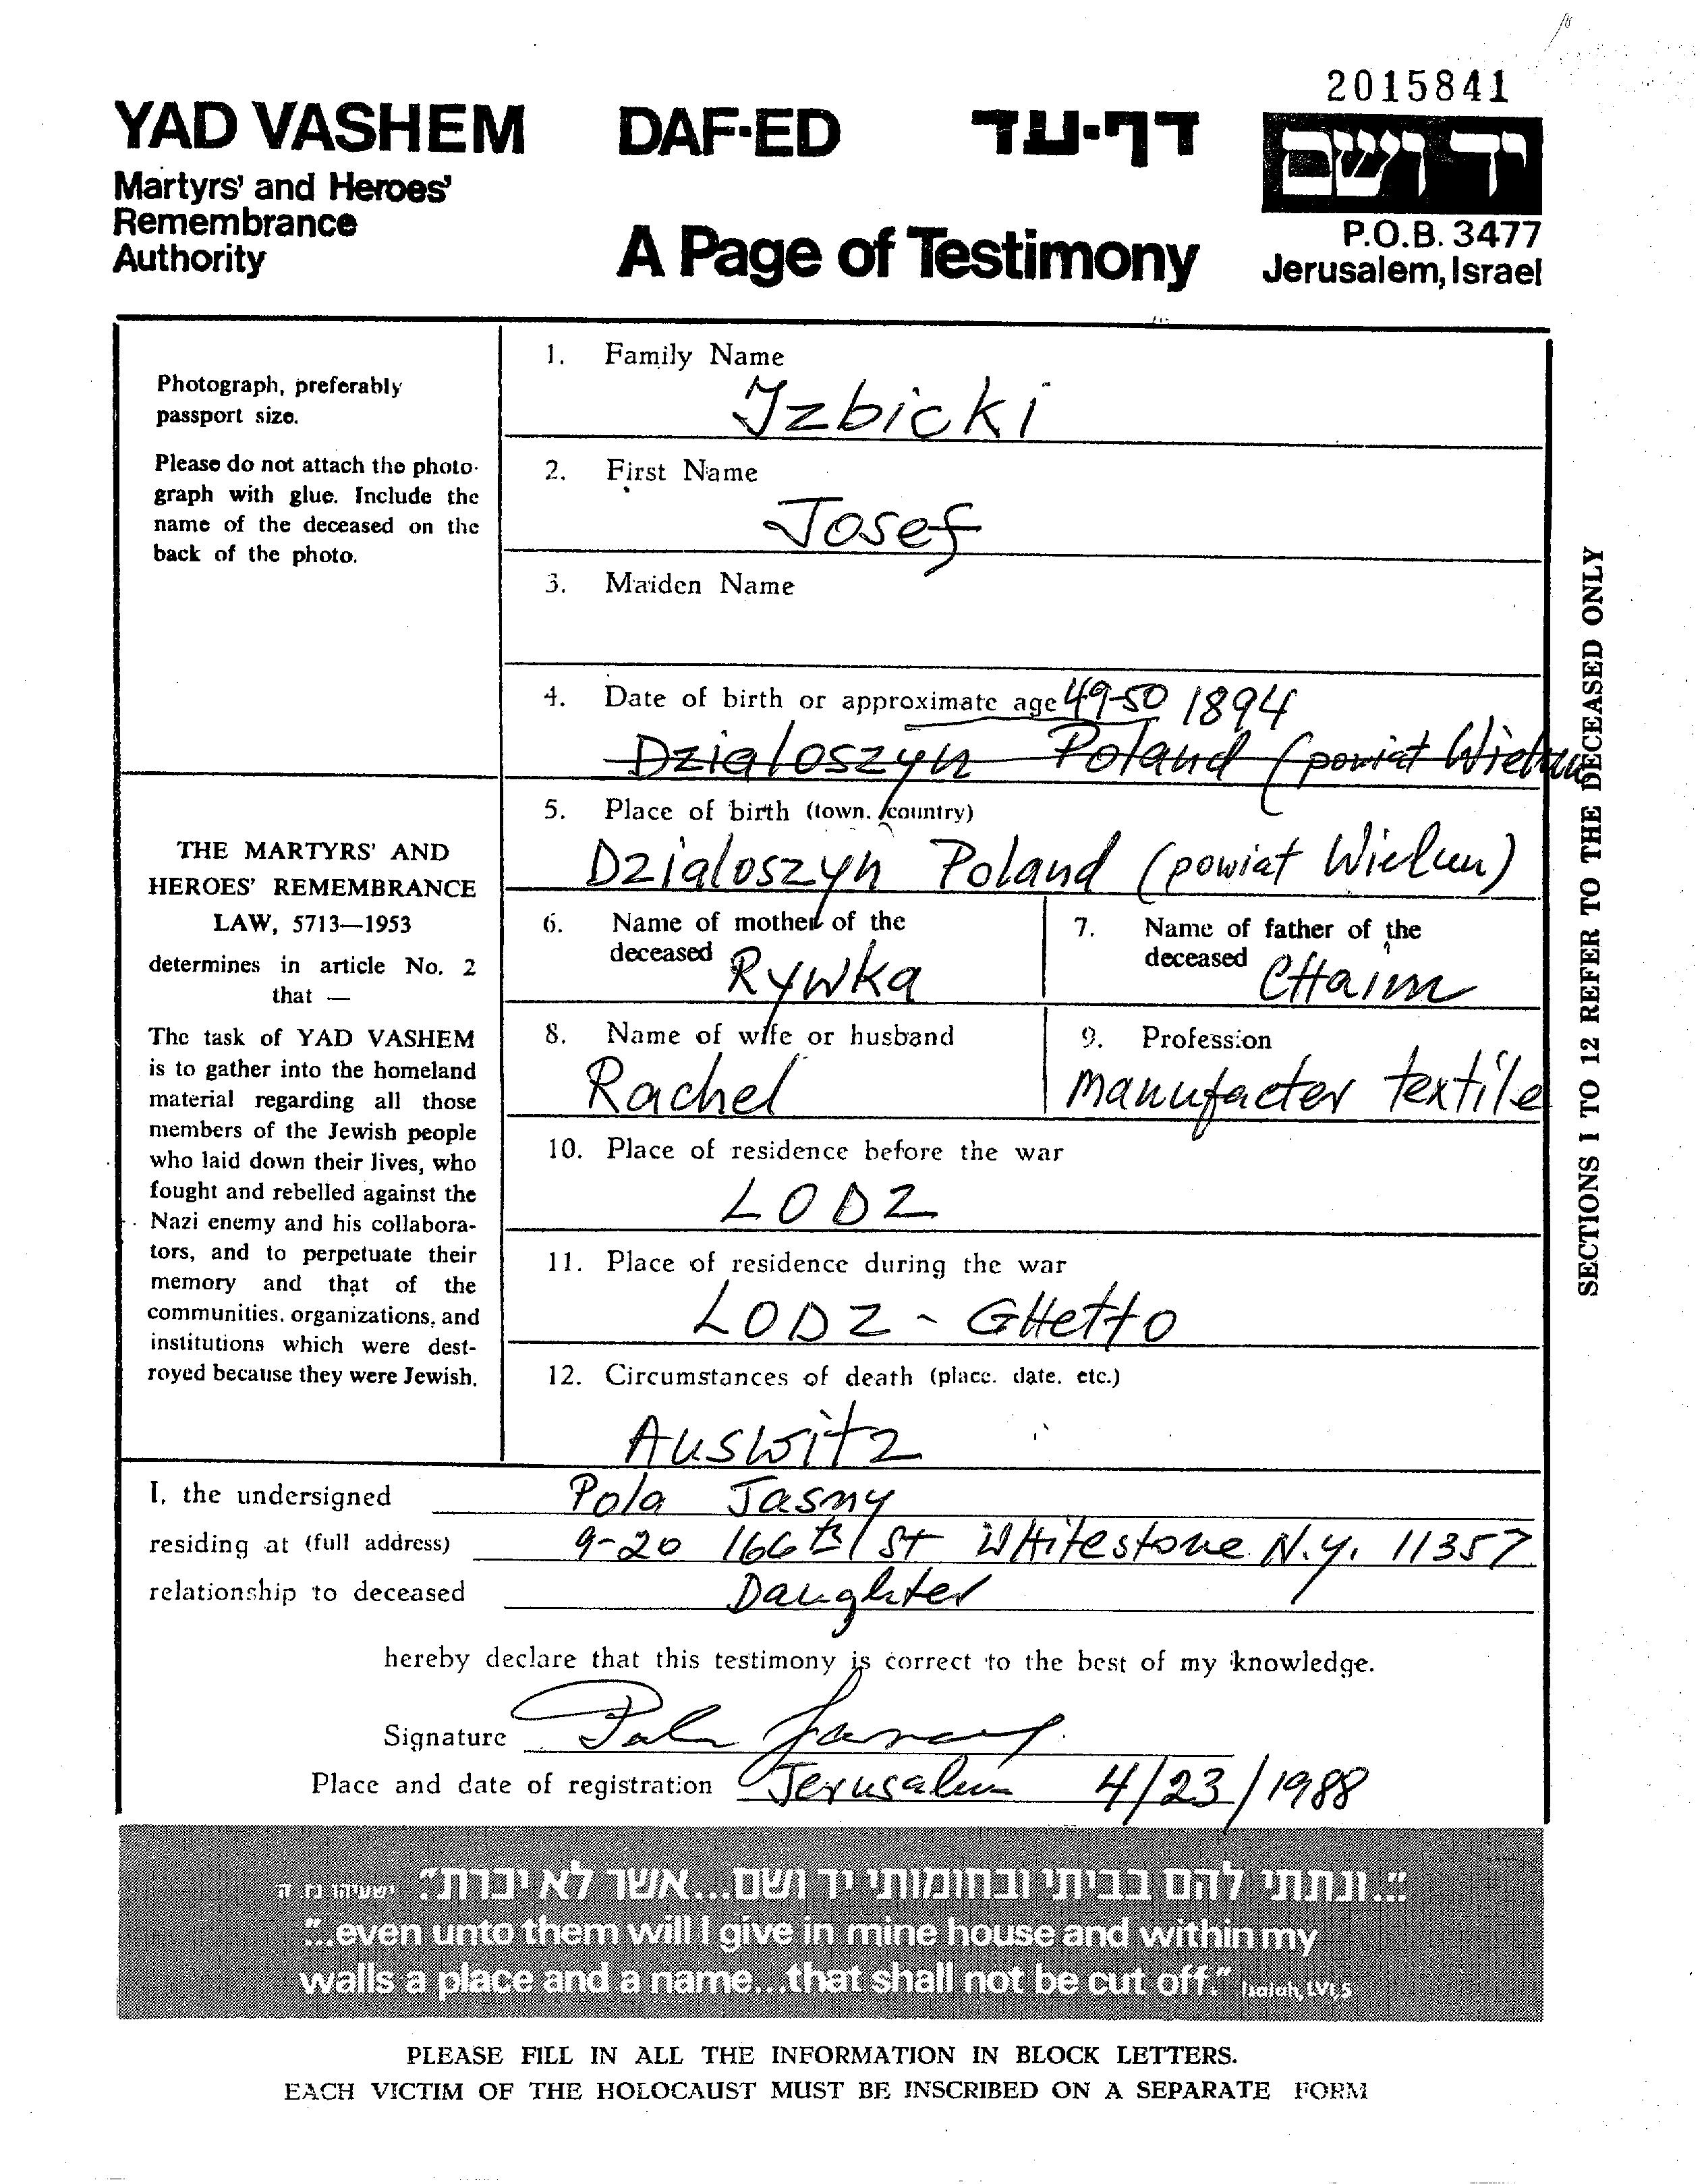 2015841
YAD VASHEM DAF-ED דף-עד יד ושם
Martyrs' and Heroes'
Remembrance
Authority
A Page of Testimony
P.O.B. 3477
Jerusalem, Israel
Photograph, preferably
passport size.
Please do not attach the photo-
graph with glue. Include the
name of the deceased on the
back of the photo.
THE MARTYRS' AND
HEROES' REMEMBRANCE
LAW, 5713—1953
determines in article No. 2
that —
The task of YAD VASHEM
is to gather into the homeland
material regarding all those
members of the Jewish people
who laid down their lives, who
fought and rebelled against the
Nazi enemy and his collabora-
tors, and to perpetuate their
memory and that of the
communities, organizations, and
institutions which were dest-
royed because they were Jewish.
1. Family Name
Izbicki
2. First Name
Josef
3. Maiden Name
4. Date of birth or approximate age 49-50 1894
Dzialoszyn Poland (powiat Wielun
5. Place of birth (town, country)
Dzialoszyn Poland (powiat Wielun)
6. Name of mother of the
deceased Rywka
7. Name of father of the
deceased CHaim
8. Name of wife or husband
Rachel
9. Profession
manufacter textile
10. Place of residence before the war
LODZ
11. Place of residence during the war
LODZ - GHetto
12. Circumstances of death (place, date, etc.)
Auswitz
SECTIONS 1 TO 12 REFER TO THE DECEASED ONLY
I, the undersigned Pola Jasny
residing at (full address) 9-20 166th St WHitestone N.y. 11357
relationship to deceased Daughter
hereby declare that this testimony is correct to the best of my knowledge.
Signature Pola Jasny
Place and date of registration Jerusalem 4/23/1988
"...ונתתי להם בביתי ובחומותי יד ושם...אשר לא יכרת". ישעיהו נו ה
"...even unto them will I give in mine house and within my
walls a place and a name...that shall not be cut off." Isaiah, LVI,5
PLEASE FILL IN ALL THE INFORMATION IN BLOCK LETTERS.
EACH VICTIM OF THE HOLOCAUST MUST BE INSCRIBED ON A SEPARATE FORM